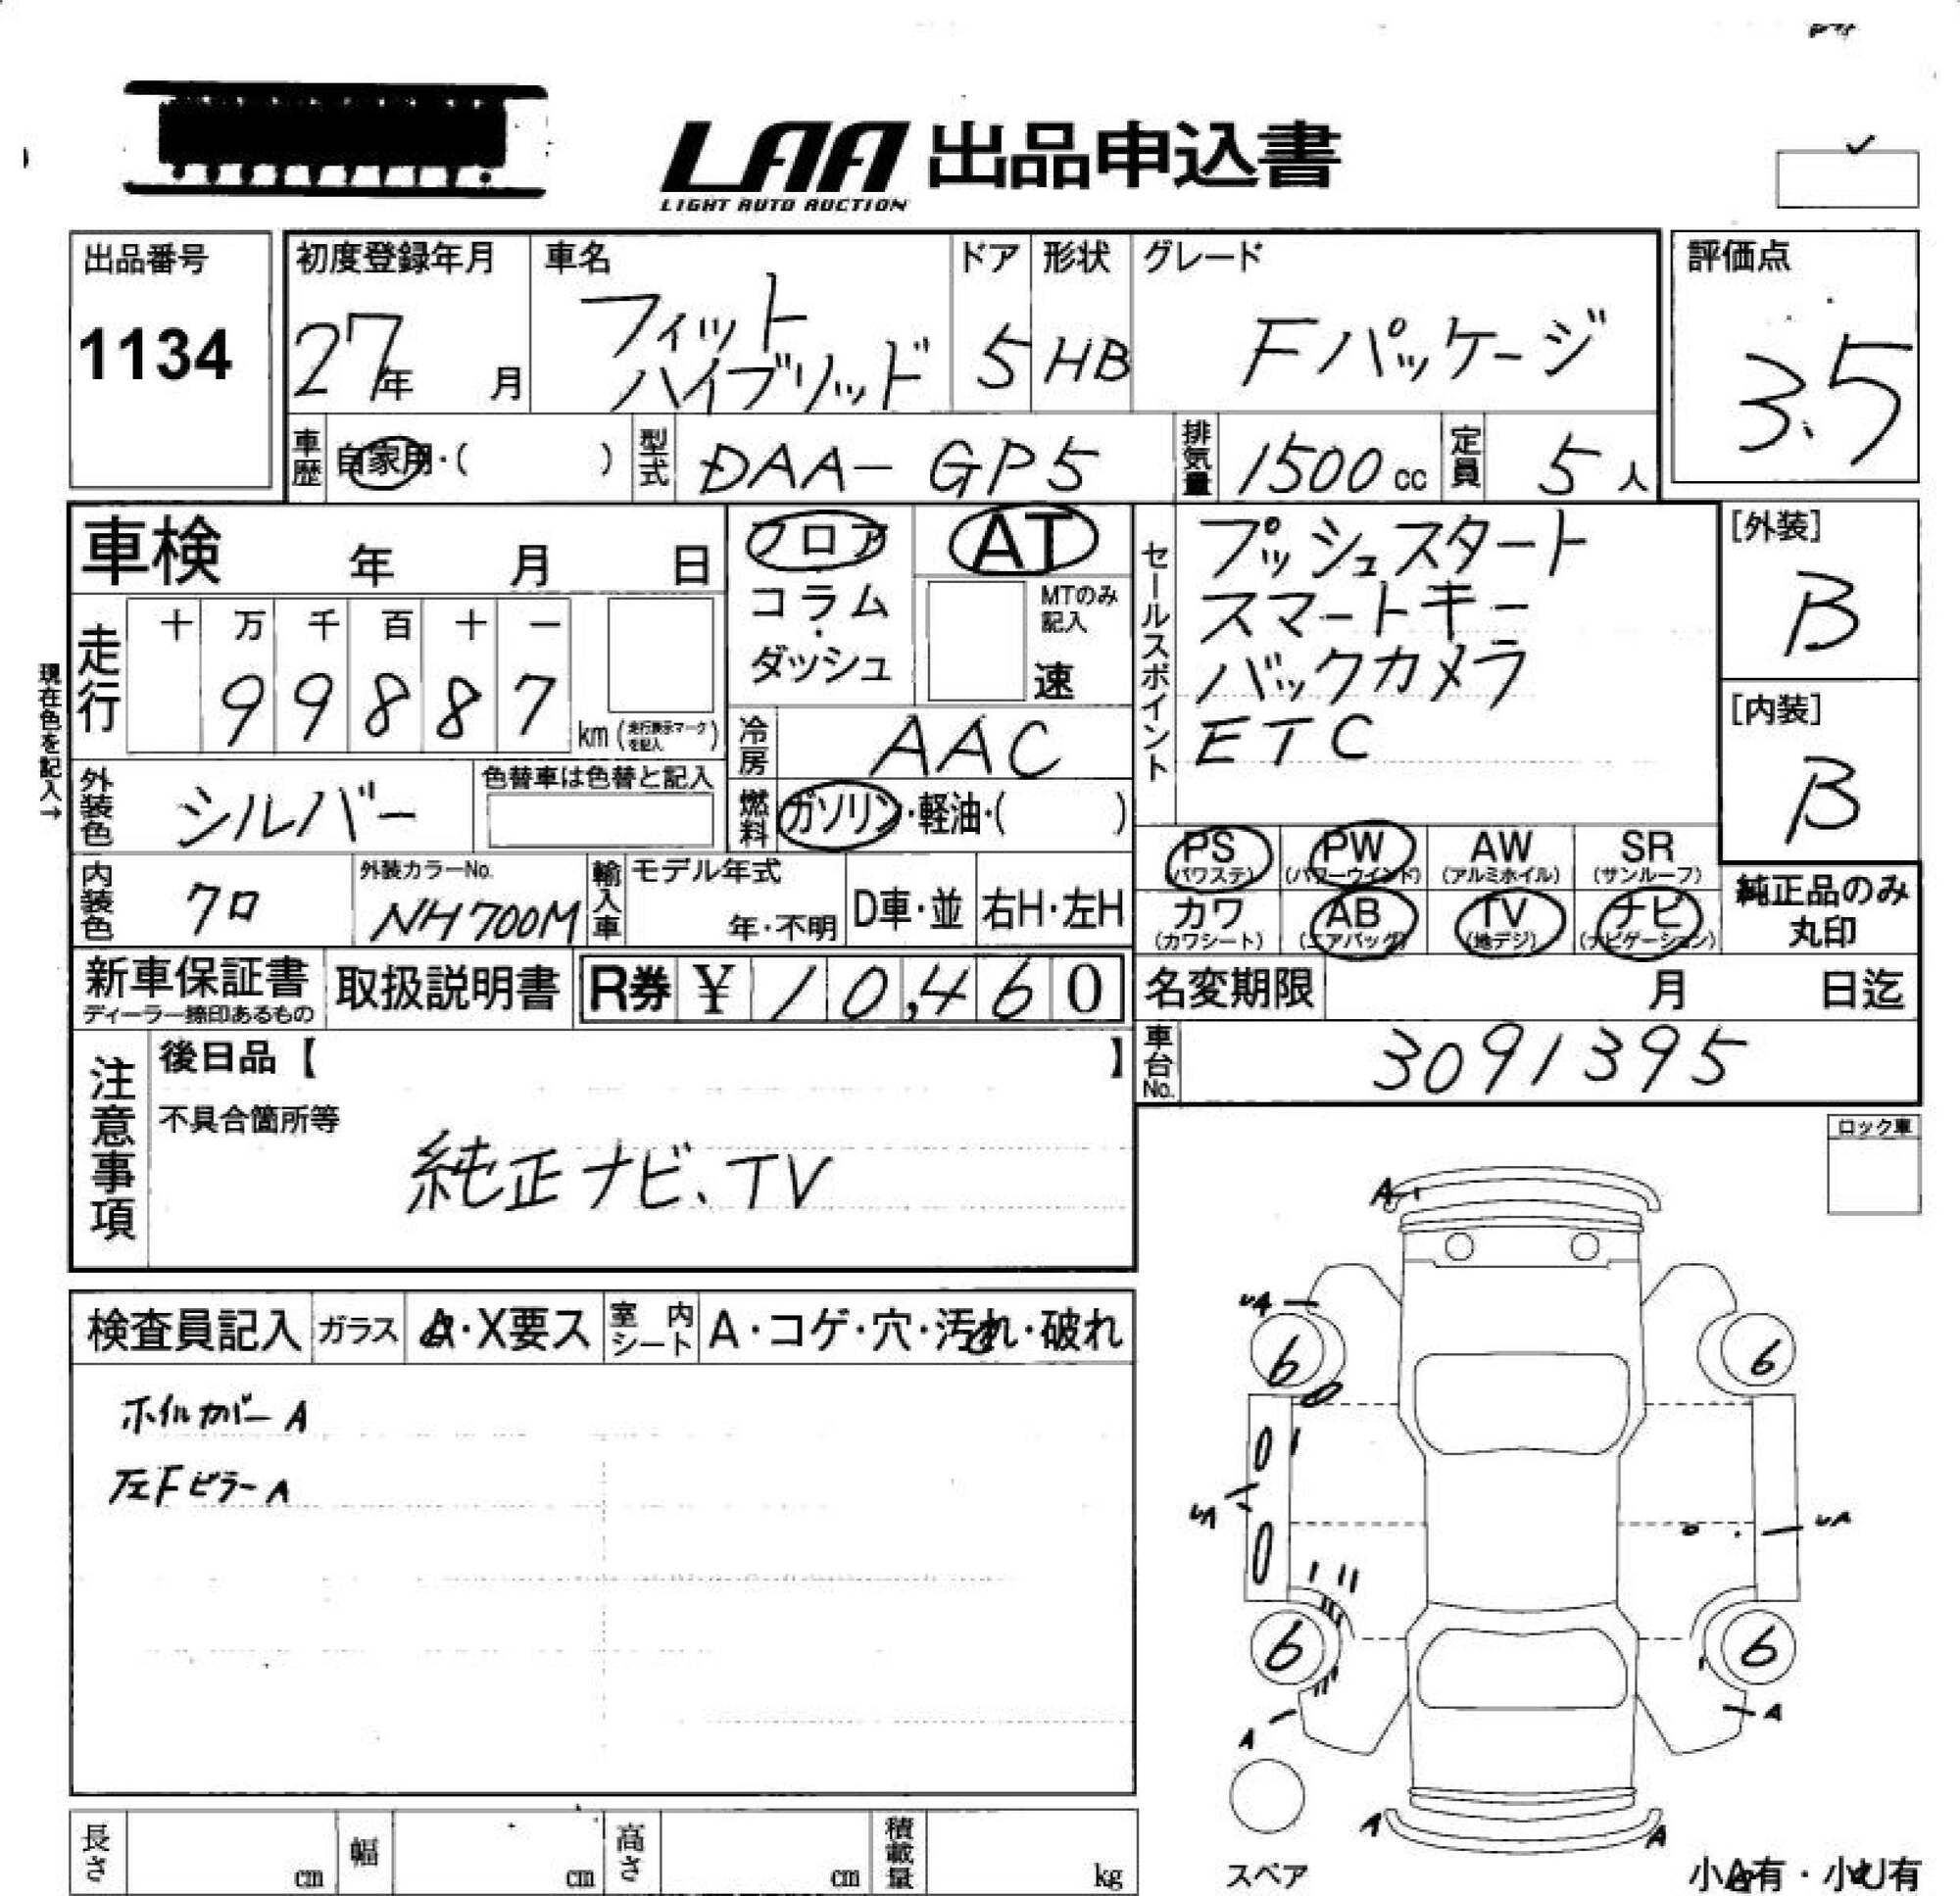 LAA 出品申込書
LIGHT AUTO AUCTION
出品番号
1134
初度登録年月
27年 月
車名
フィット
ハイブリッド
ドア
5
形状
HB
グレード
Fパッケージ
評価点
3.5
車歴 自家用・( )
型式 DAA-GP5
排気量 1500cc
定員 5人
車検 年 月 日
フロア
コラム
・
ダッシュ
AT
MTのみ
記入
速
セールスポイント
プッシュスタート
スマートキー
バックカメラ
ETC
[外装]
B
[内装]
B
現在色を記入→
走行
十 万 千 百 十 一
9 9 8 8 7
km (走行表示マークを記入)
冷房 AAC
外装色 シルバー
色替車は色替と記入
燃料 ガソリン・軽油・( )
内装色 クロ
外装カラーNo.
NH700M
輸入車 モデル年式
年・不明
D車・並
右H・左H
PS (パワステ)
PW (パワーウインド)
AW (アルミホイル)
SR (サンルーフ)
カワ (カワシート)
AB (エアバッグ)
TV (地デジ)
ナビ (ナビゲーション)
純正品のみ
丸印
新車保証書
ディーラー捺印あるもの
取扱説明書
R券 ¥ 10,460
名変期限 月 日迄
車台No. 3091395
注意事項
後日品【 】
不具合箇所等
純正ナビ、TV
ロック車
検査員記入 ガラス A・X要ス 室内シート A・コゲ・穴・汚れ・破れ
ホイルカバーA
左FピラーA
A
UA
6 6
UA
UA
6 6
A
A
A
A
スペア
小A有・小U有
長さ cm
幅 cm
高さ cm
積載量 kg